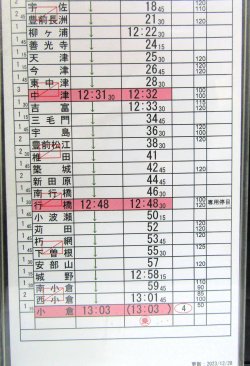 宇佐 18 45 120 110
豊前長洲 21 30
柳ヶ浦 12:22 30
善光寺 24 15
天津 25
今津 28 120
東中津 28 30
中津 12:31 30 12:32 100 100
吉富 12:33 30 115 120
三毛門 34 45
宇島 36 30 120
豊前松江 38 30
椎田 41
築城 42 45 120
新田原 44 45
南行橋 46 30
行橋 12:48 12:48 30 120 100 専用停目
小波瀬 50 15 120
苅田 52 120
朽網 53 45
下曽根 55 30 120
安部山 57 120
城野 12:58 15
南小倉 59 45
西小倉 13:01 45 100
小倉 13:03 (13:03) 50 4
乗
2023/12/20